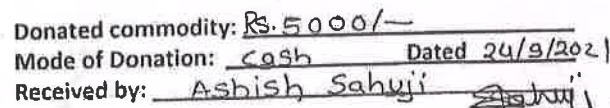 Donated commodity: Rs. 5000/-
Mode of Donation: Cash Dated 24/9/2021
Received by: Ashish Sahuji